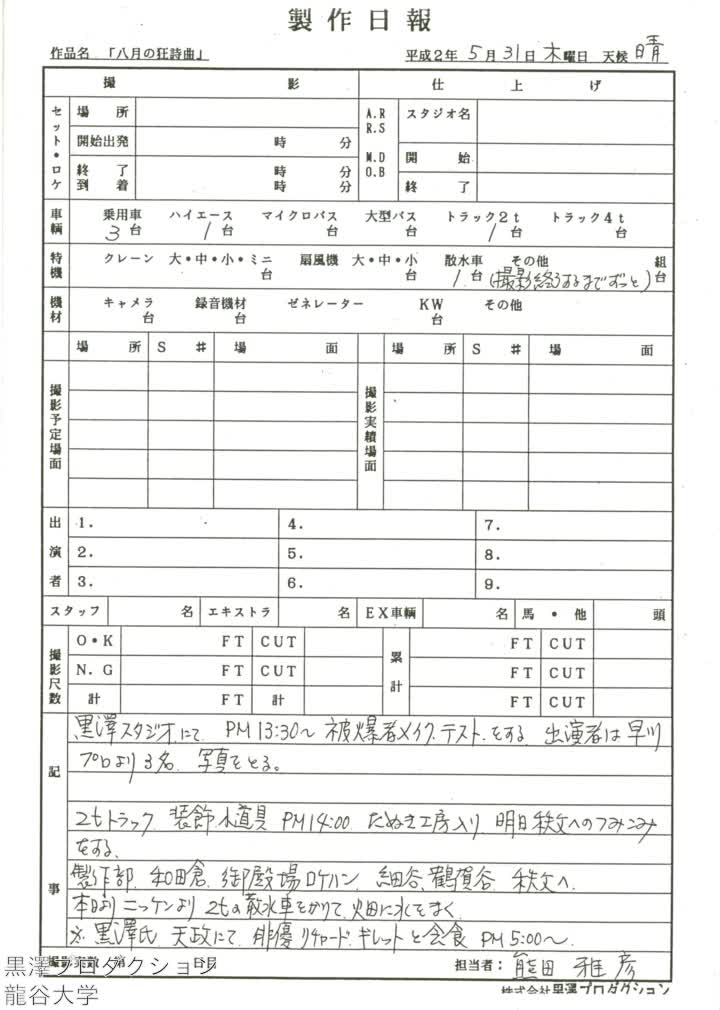 製作日報
作品名 「八月の狂詩曲」 平成2年 5月31日 木曜日 天候 晴
撮影 仕上げ
セット・ロケ 場所 A.R R.S M.D O.B スタジオ名
開始出発 時 分 開始
終了 時 分 終了
到着 時 分
車輌 乗用車 ハイエース マイクロバス 大型バス トラック2t トラック4t
3台 1台 台 台 1台 台
特機 クレーン 大・中・小・ミニ 扇風機 大・中・小 散水車 その他 組
台 台 1台 (撮影終了するまでずっと) 台
機材 キャメラ 録音機材 ゼネレーター KW その他
台 台 台
場所 S # 場面 場所 S # 場面
撮影予定場面 撮影実績場面
出演者
1. 4. 7.
2. 5. 8.
3. 6. 9.
スタッフ 名 エキストラ 名 EX車輌 名 馬・他 頭
撮影尺数 O・K FT CUT 累計 FT CUT
N.G FT CUT FT CUT
計 FT 計 FT CUT
記事
黒澤スタジオにて PM13:30〜 被爆者メイク.テスト.をする 出演者は早川
プロより3名. 写真をとる。
2tトラック. 装飾.小道具 PM14:00. たぬき工房入り. 明日秩父へのつみこみ
をする、
製作部. 和田倉. 御殿場ロケハン. 細谷、鶴賀谷. 秩父へ.
本日よりニッケンより 2tの散水車をかりて、畑に水をまく
※ 黒澤氏 天政にて、俳優リチャード.ギレットと会食 PM5:00〜.
担当者: 熊田 雅彦
株式会社黒澤プロダクション
黒澤プロダクション
龍谷大学